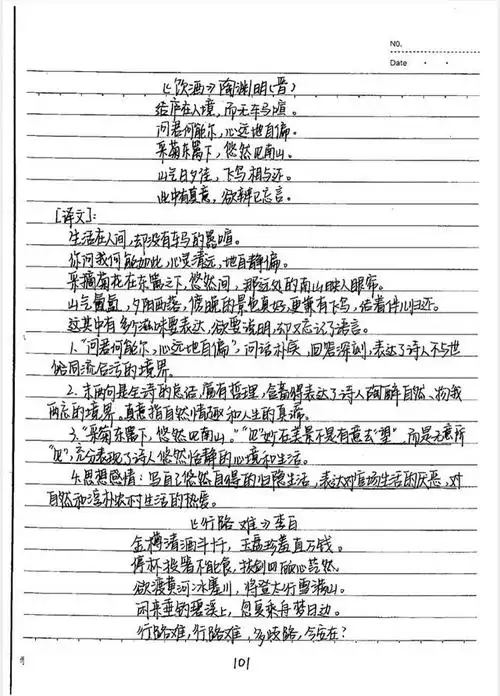 NO.
Date
《饮酒》陶渊明(晋)
结庐在人境,而无车马喧。
问君何能尔,心远地自偏。
采菊东篱下,悠然见南山。
山气日夕佳,飞鸟相与还。
此中有真意,欲辨已忘言。
[译文]:
生活在人间,却没有车马的嚣喧。
你问我何能如此,心灵清远,地自静偏。
采摘菊花在东篱之下,悠然间,那远处的南山映入眼帘。
山气氤氲,夕阳西落,傍晚的景色真好,更兼有飞鸟,结着伴儿归还。
这其中有多少滋味要表达,欲要说明,却又忘记了语言。
1."问君何能尔,心远地自偏",问话朴实,回答深刻,表达了诗人不与世
俗同流合污的境界。
2.末两句是全诗的总结,富有哲理,含蓄得表达了诗人陶醉自然、物我
两忘的境界。真意指自然情趣和人生的真谛。
3."采菊东篱下,悠然见南山。""见"妙在美景不是有意去"望",而是无意所
"见",充分表现了诗人悠然恬静的心境和生活。
4.思想感情:写自己悠然自得的归隐生活,表达对官场生活的厌恶,对
自然和淳朴农村生活的热爱。
《行路难》李白
金樽清酒斗十千,玉盘珍羞直万钱。
停杯投箸不能食,拔剑四顾心茫然。
欲渡黄河冰塞川,将登太行雪满山。
闲来垂钓碧溪上,忽复乘舟梦日边。
行路难,行路难,多歧路,今安在?
101